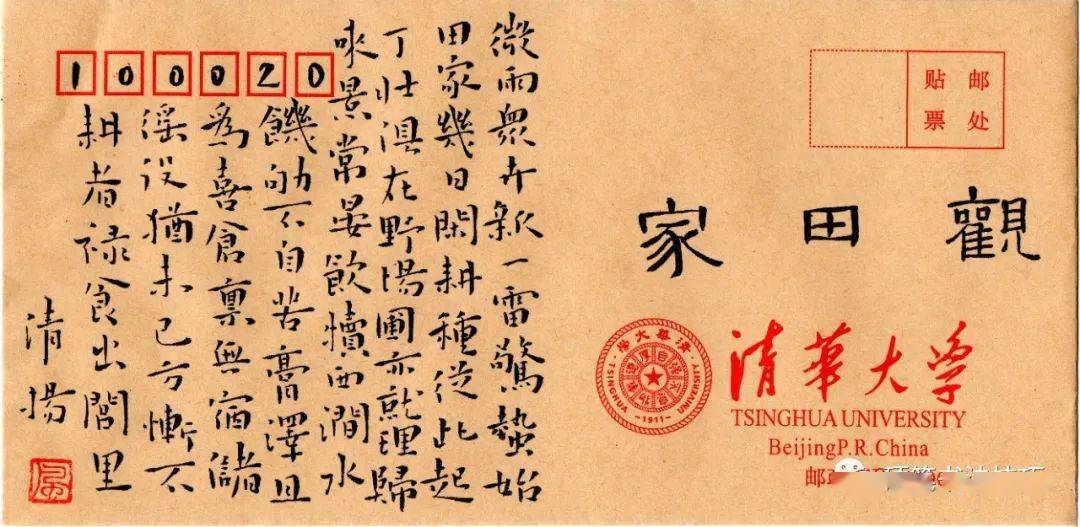 100020
微雨眾卉新一雷驚蟄始
田家幾日閑耕種從此起
丁壯俱在野場圃亦就理歸
來景常晏飲犢西澗水
饑劬不自苦膏澤且
為喜倉禀無宿儲
徭役猶未已方慚不
耕者禄食出閭里
清揚
贴邮
票处
觀田家
清華大學
TSINGHUA UNIVERSITY
-1911-
清華大学
TSINGHUA UNIVERSITY
Beijing P.R.China
邮